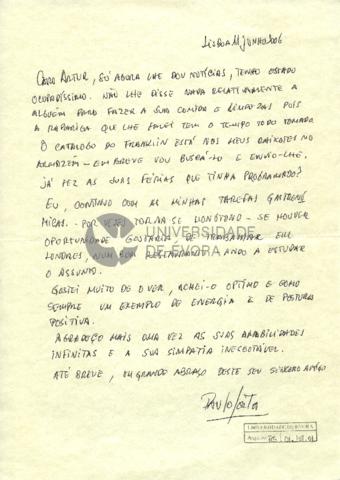 LISBOA 11 JUNHO 2006
CARO ARTUR, SÓ AGORA LHE DOU NOTÍCIAS, TENHO ESTADO
OCUPADÍSSIMO. NÃO LHE DISSE NADA RELATIVAMENTE A
ALGUÉM PARA FAZER A SUA COMIDA E LIMPEZAS POIS
A RAPARIGA QUE LHE FALEI TEM O TEMPO TODO TOMADO
O CATALOGO DO FRANKLIN ESTÁ NOS MEUS CAIXOTES NO
ARMAZÉM - EM BREVE VOU BUSCÁ-LO E ENVIO-LHE.
JÁ FEZ AS SUAS FÉRIAS QUE TINHA PROGRAMADO?
EU, CONTINUO COM AS MINHAS TAREFAS GASTRONÓ
MICAS. - POR VEZES TORNA-SE MONÓTONO - SE HOUVER
OPORTUNIDADE GOSTARIA DE TRABALHAR EM
LONDRES, NUM BOM RESTAURANTE. ANDO A ESTUDAR
O ASSUNTO.
GOSTEI MUITO DE O VER, ACHEI-O OPTIMO E COMO
SEMPRE UM EXEMPLO DE ENERGIA E DE POSTURA
POSITIVA.
AGRADEÇO MAIS UMA VEZ AS SUAS AMABILIDADES
INFINITAS E A SUA SIMPATIA INESGOTÁVEL.
ATÉ BREVE, UM GRANDE ABRAÇO DESTE SEU SINCERO AMIGO
UNIVERSIDADE
DE ÉVORA
UNIVERSIDADE DE ÉVORA